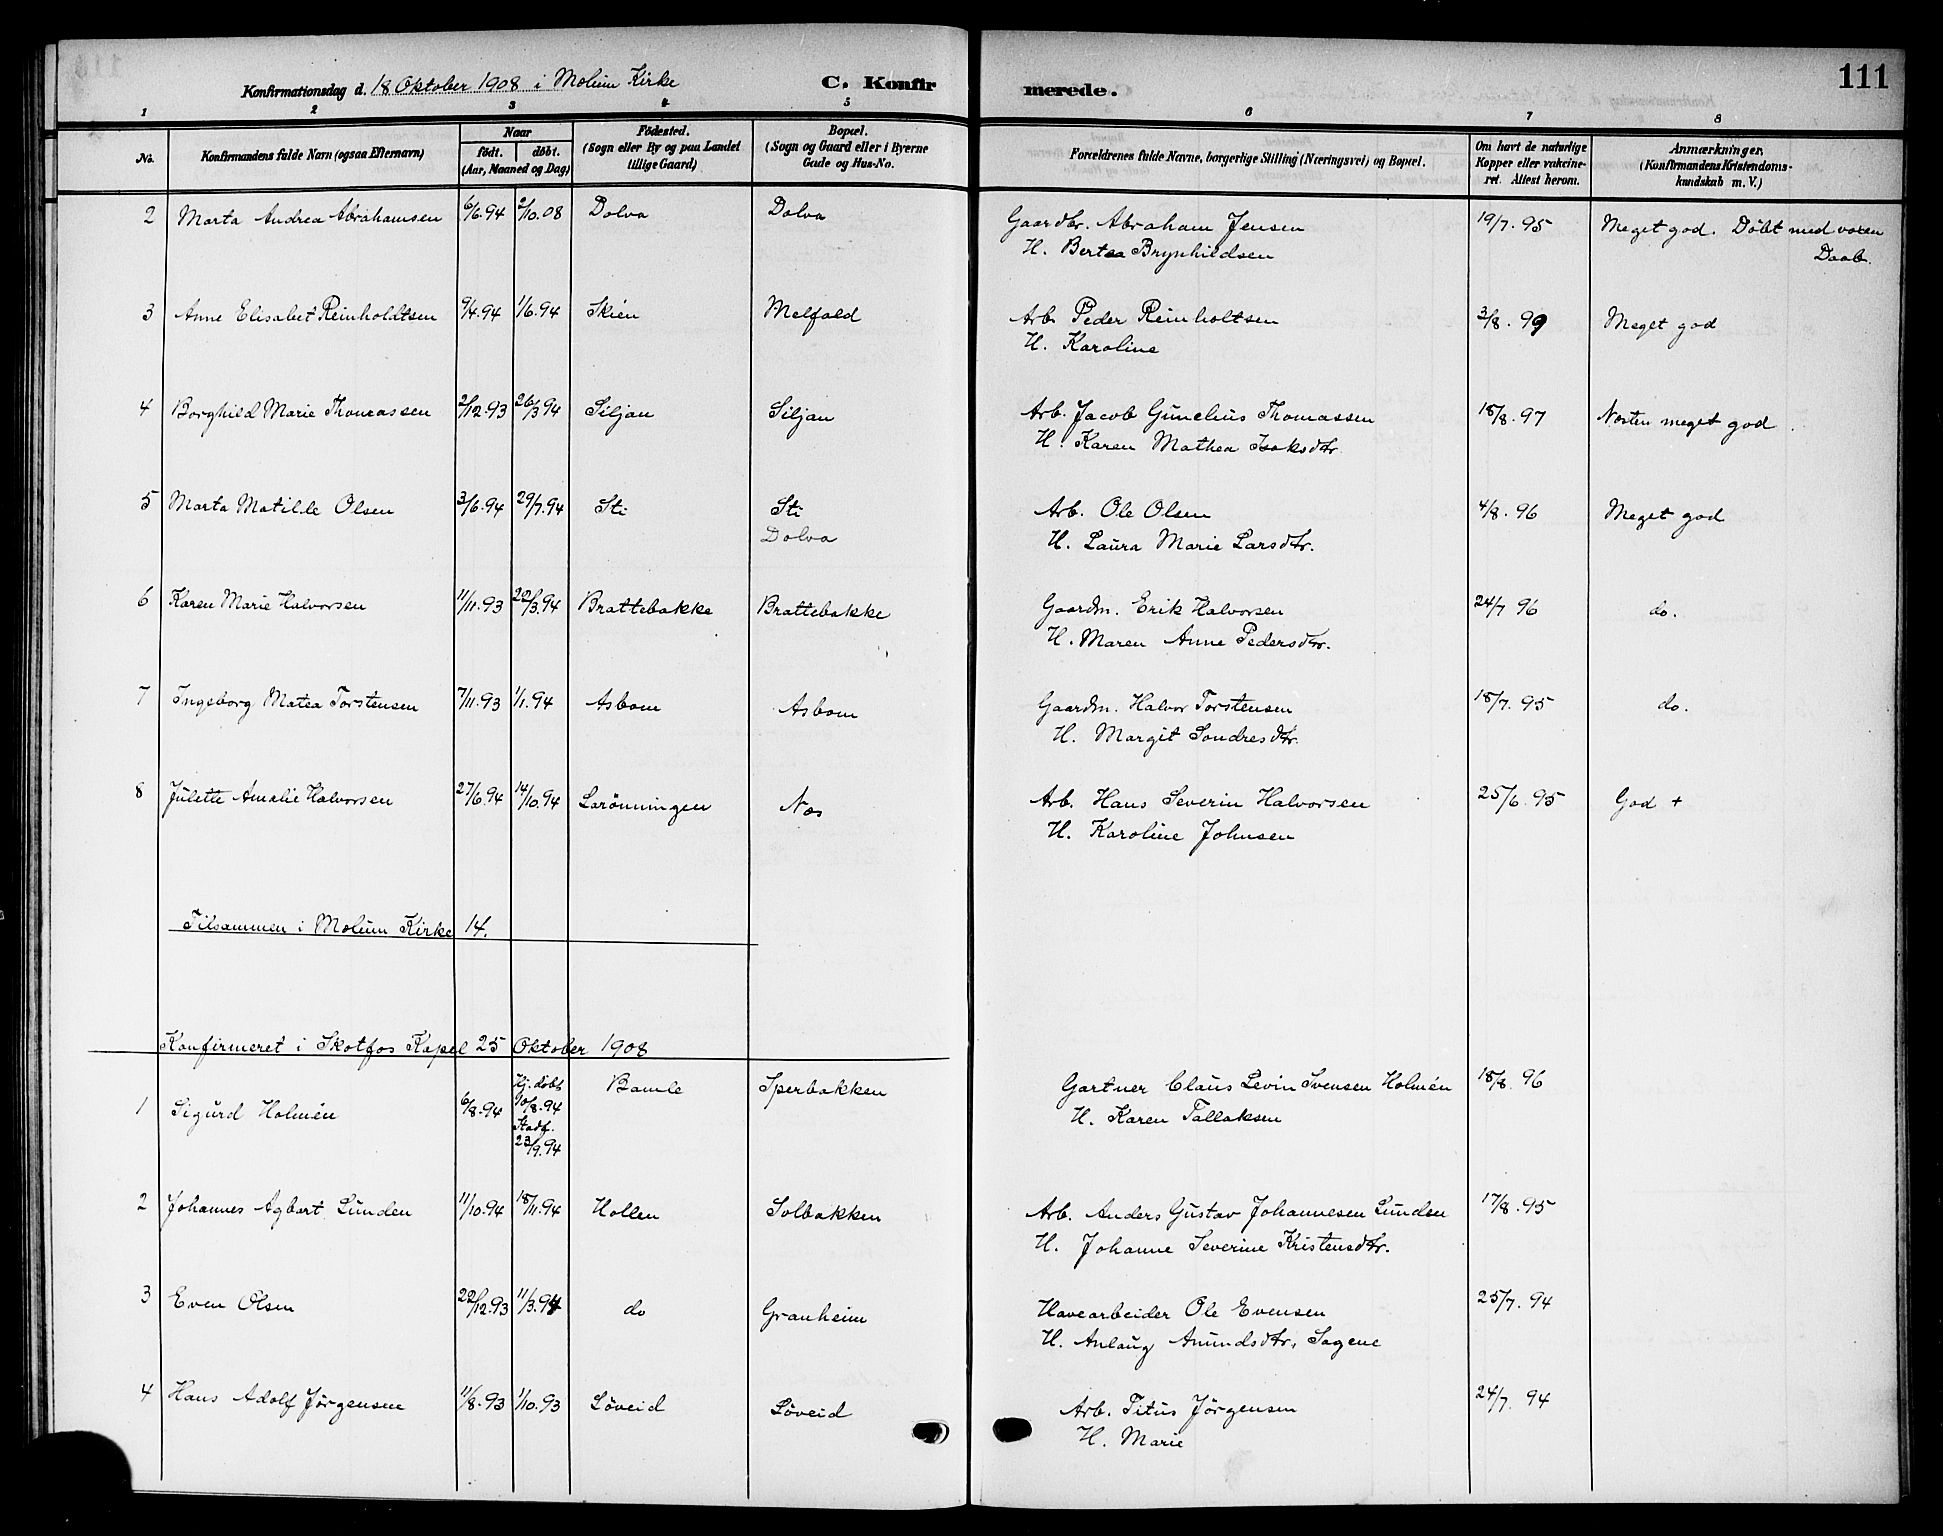 Konfirmationsdag d. 18 Oktober 1908 i Molum Kirke C. Konfir merede. 111
1 2 3 4 5 6 7 8
No. Konfirmandens fulde Navn (ogsaa Efternavn) Naar født. døbt. (Aar, Maaned og Dag) Fødested. (Sogn eller By og paa Landet tillige Gaard) Bopæl. (Sogn og Gaard eller i Byerne Gade og Hus-No. Forældrenes fulde Navne, borgerlige Stilling (Næringsvei) og Bopæl. Om havt de naturlige Kopper eller vakcineret. Attest herom. Anmærkninger, (Konfirmandens Kristendomskundskab m. V.)
2 Marta Andrea Abrahamsen 6/6.94 2/10.08 Dolva Dolva Gaardbr. Abraham Jensen 19/7.95 Meget god. Döbt med voxen
H. Bertea Brynhildsen Daab.
3 Anne Elisabet Reinholdtsen 9/4.94 1/6.94 Skien Melfald Arb. Peder Reinholtsen 3/8.99 Meget god
H. Karoline
4 Borghild Marie Thomassen 2/12.93 26/3.94 Siljan Siljan Arb. Jacob Gunelius Thomassen 18/8.97 Næsten meget god
H. Karen Mathea Isaksdtr.
5 Marta Matilde Olsen 3/6.94 29/7.94 Sti Sti Arb. Ole Olsen 4/8.96 Meget god
Dolva H. Laura Marie Larsdtr.
6 Karen Marie Halvorsen 11/11.93 22/3.94 Brattebakke Brattebakke Gaardm. Erik Halvorsen 24/7 96 do.
H. Maren Anne Pedersdtr.
7 Ingeborg Matea Torstensen 7/11.93 1/1.94 Asbom Asbom Gaardm. Halvor Torstensen 18/7.95 do.
H. Margit Sondresdtr.
8 Julette Amalie Halvorsen 27/6.94 14/10.94 Larönningen Næs Arb. Hans Severin Halvorsen 25/6.95 God +
H. Karoline Johnsen
Tilsammen i Molum Kirke 14.
Konfirmeret i Skotfos Kapel 25 Oktober 1908
1 Sigurd Holmén 6/8.94 Hj. døbt 10/8.94 Stadf. 23/9.94 Bamle Sperbakken Gartner Claus Levin Svensen Holmén 18/8.96
H. Karen Tallaksen
2 Johannes Agbart Lunden 11/10.94 18/11.94 Hollen Solbakken Arb. Anders Gustav Johannesen Lunden 17/8.95
H. Johanne Severine Kristensdtr.
3 Even Olsen 22/12.93 11/3.94 do Granheim Havearbeider Ole Evensen 25/7.94
H. Anlaug Amundsdtr, Sagene
4 Hans Adolf Jørgensen 11/8.93 1/10.93 Løveid Løveid Arb. Titus Jørgensen 24/7.94
H. Marie